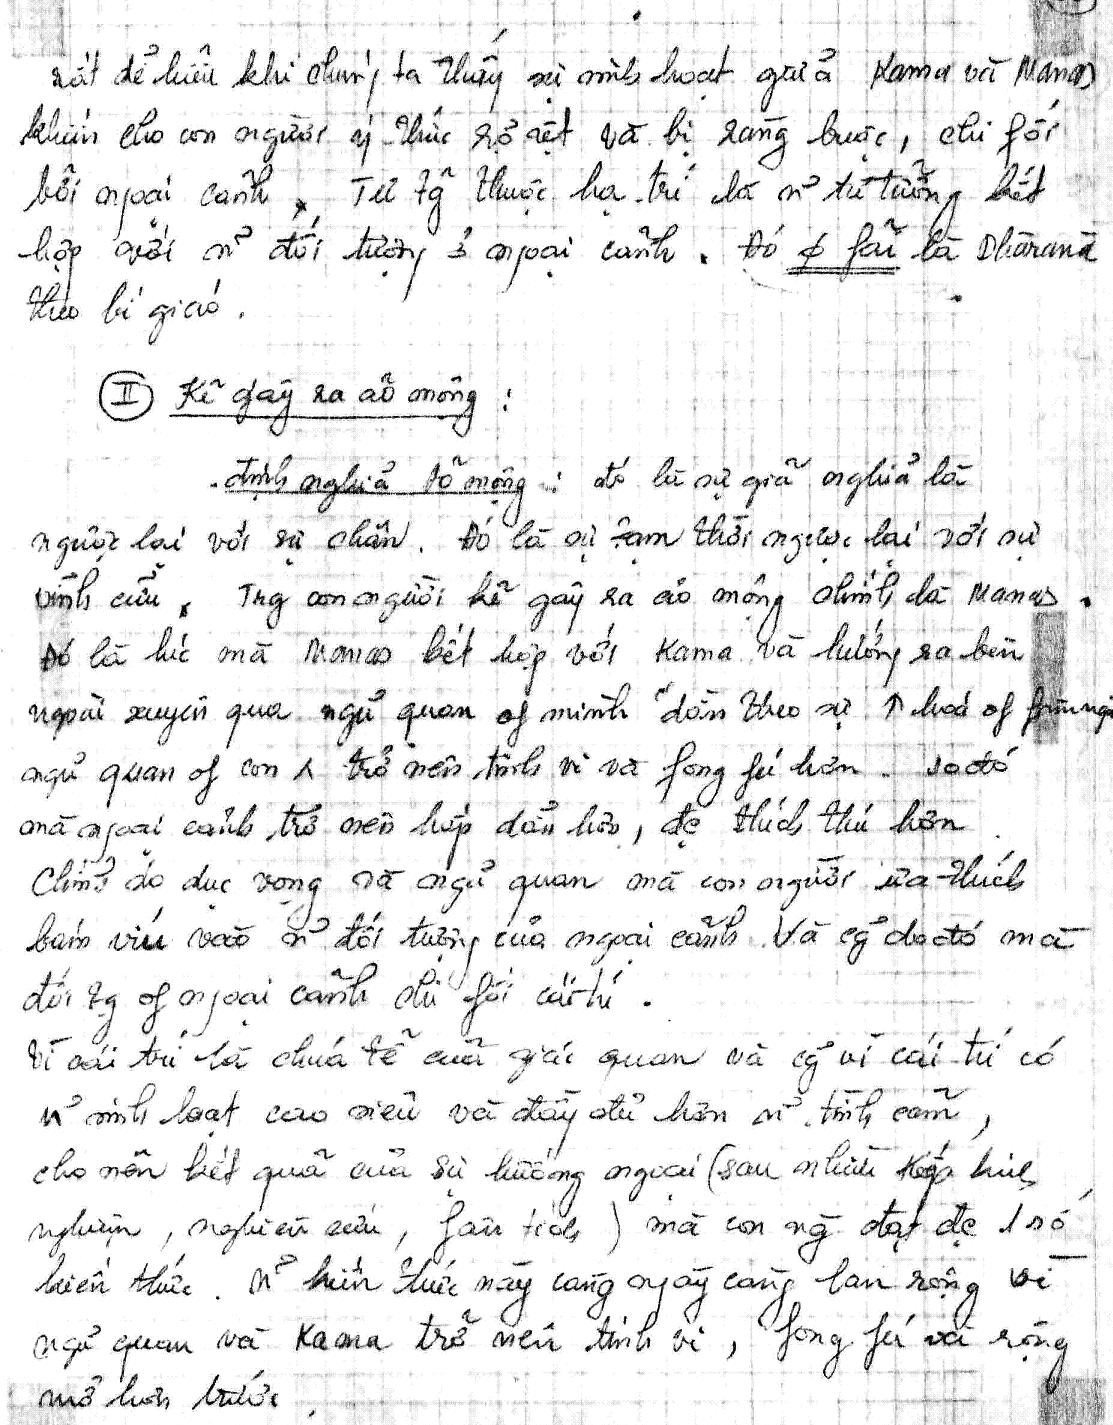 rất dể hiểu khi chúng ta thấy sự sinh hoạt giửa Kama và Manas
khiến cho con người ý thức rỏ rệt và bị ràng buộc, chi fối
bởi ngoại cảnh. Tư tg thuộc hạ trí là n~ tư tưởng kết
hợp với n~ đối tượng ở ngoại cảnh. Đó ϕ fãi là Dhāranā
theo bí giáo.
II Kẽ gây ra ảo mộng :
. định nghiả ảo mộng : đó là sự giã nghiả là
ngược lại với sự chân. Đó là sự tạm thời ngược lại với sự
vĩnh cữu. Trg con người kẽ gây ra ảo mộng chính là Manas.
Đó là lúc mà Manas kết hợp với Kama và hướng ra bên
ngoài xuyên qua ngủ quan of mình dần theo sự ↑ hoá of
ngủ quan of con λ trở nên tinh vi và fong fú hơn. Do đó
mà ngoại cảnh trở nên hấp dẫn hơn, đc thích thú hơn.
Chính do dục vọng và ngủ quan mà con người ưa thích
bám víu vào n~ đối tượng của ngoại cảnh. Và cg do đó mà
đối tg of ngoại cảnh chi fối cái trí.
Vì cái trí là chúa tể cuả giác quan và cg vì cái trí có
n~ sinh hoạt cao siêu và đầy đủ hơn n~ tình cảm,
cho nên kết quả của sự hướng ngoại (sau nhiều kiếp kinh
nghiệm, nghiên cứu, fân tích) mà con ng đạt đc 1 số
kiến thức. n~ kiến thức này càng ngày càng lan rộng vì
ngủ quan và Kama trở nên tinh vi, fong fú và rộng
mở hơn trước.